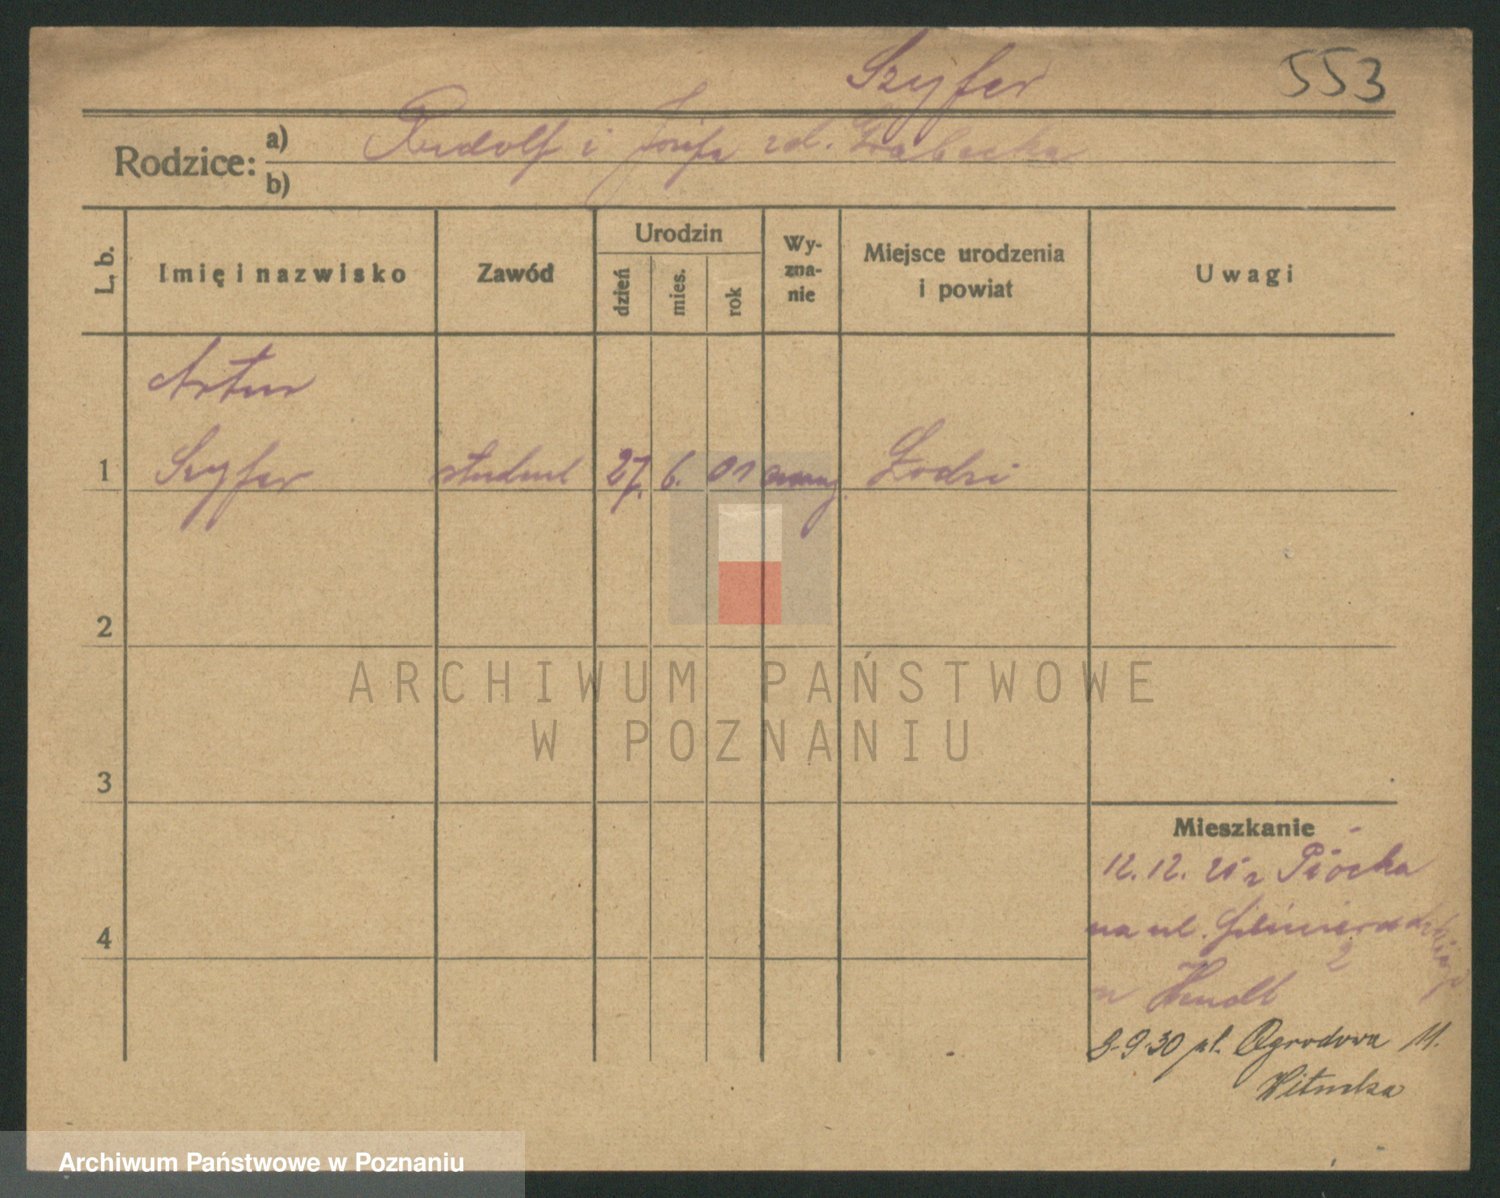 Szyfer 553
Rodzice: a) Rudolf i Józefa zd.
b)
L. b.
Imię i nazwisko
Zawód
Urodzin
dzień
mies.
rok
Wy-
zna-
nie
Miejsce urodzenia
i powiat
Uwagi
Artur
1 Szyfer student 27. 6. 01 Łodzi
2
ARCHIWUM PAŃSTWOWE
W POZNANIU
3
Mieszkanie
12. 12. z Płocka
4 na ul.
2
8-9-30 Ogrodowa 11.
Archiwum Państwowe w Poznaniu